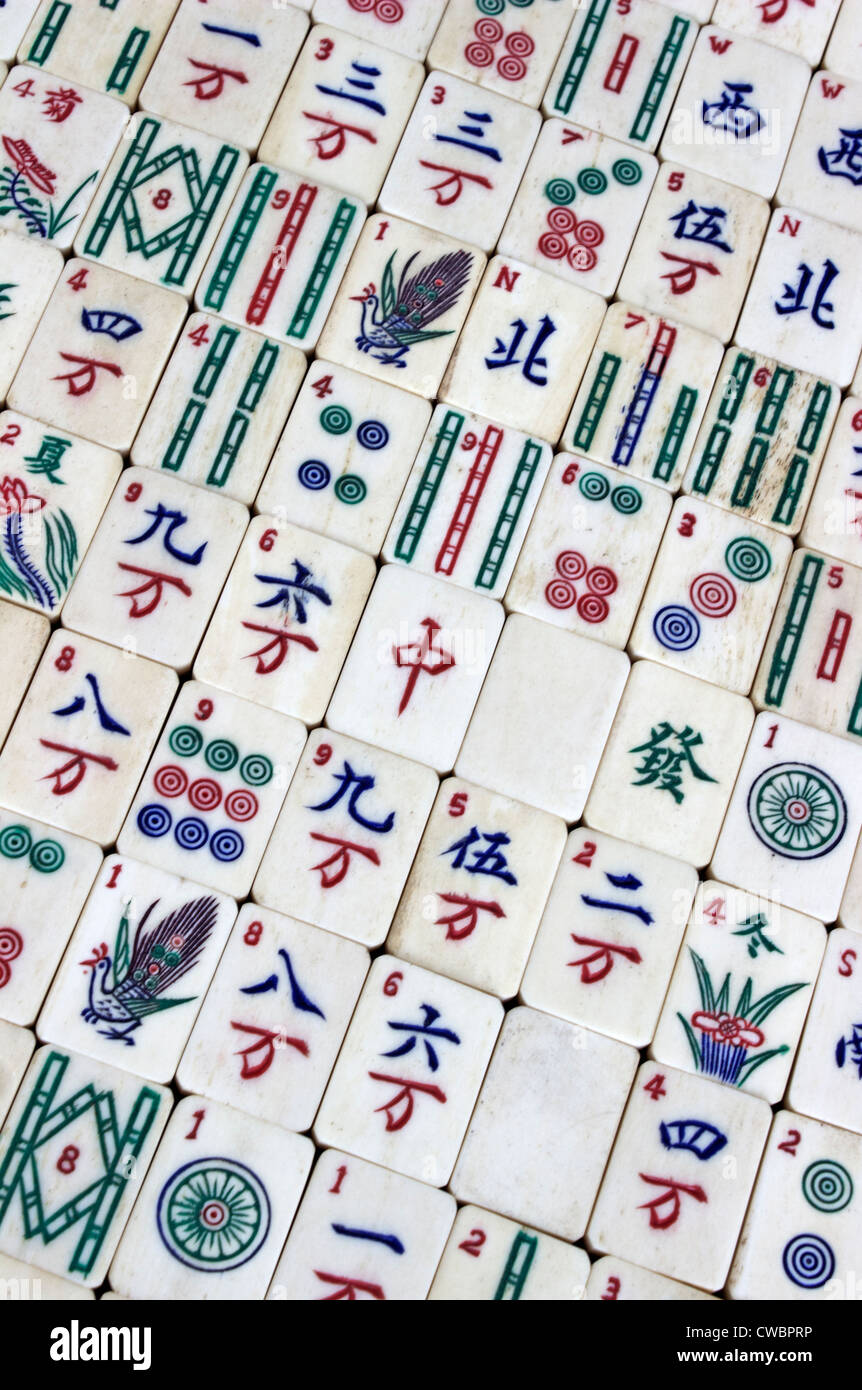 一
萬
3
三
万
3
三
万
5
W
西
W
西
4
菊
8
9
7
5
伍
万
N
北
1
N
北
4
四
万
4
4
9
7
6
2
夏
9
九
万
6
六
万
中
6
3
5
8
八
万
9
9
九
万
5
伍
万
2
二
万
發
1
1
8
八
万
6
六
万
4
冬
S
南
8
1
1
一
万
2
4
四
万
2
1
a
alamy
Image ID: CWBPRP
www.alamy.com